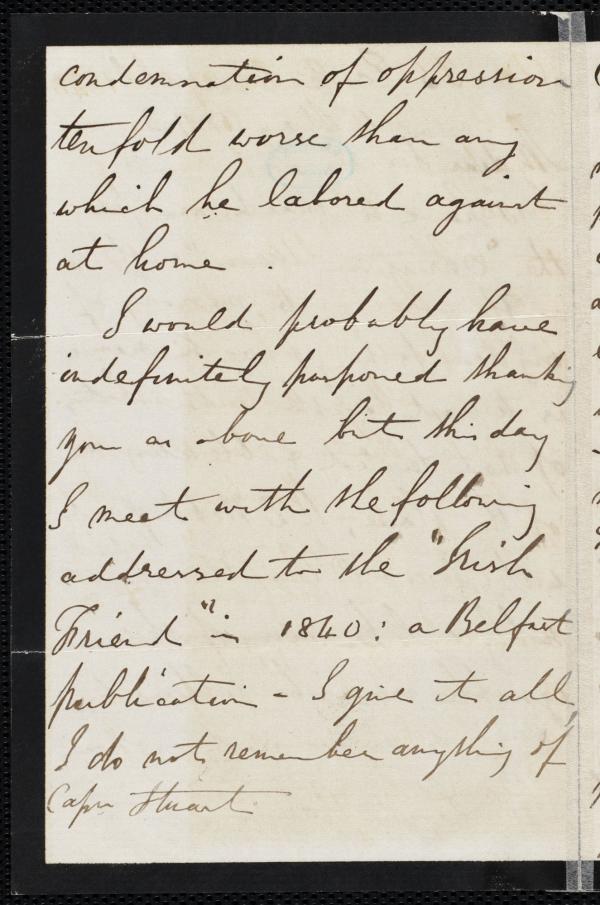 condemnation of oppression
tenfold worse than any
which he labored against
at home .
I would probably have
indefinitely posponed thanking
you as above but this day
I meet with the following
addressed to the "Irish
Friend" in 1840: a Belfast
publication - I give it all,
I do not remember anything of
Capn Stuart